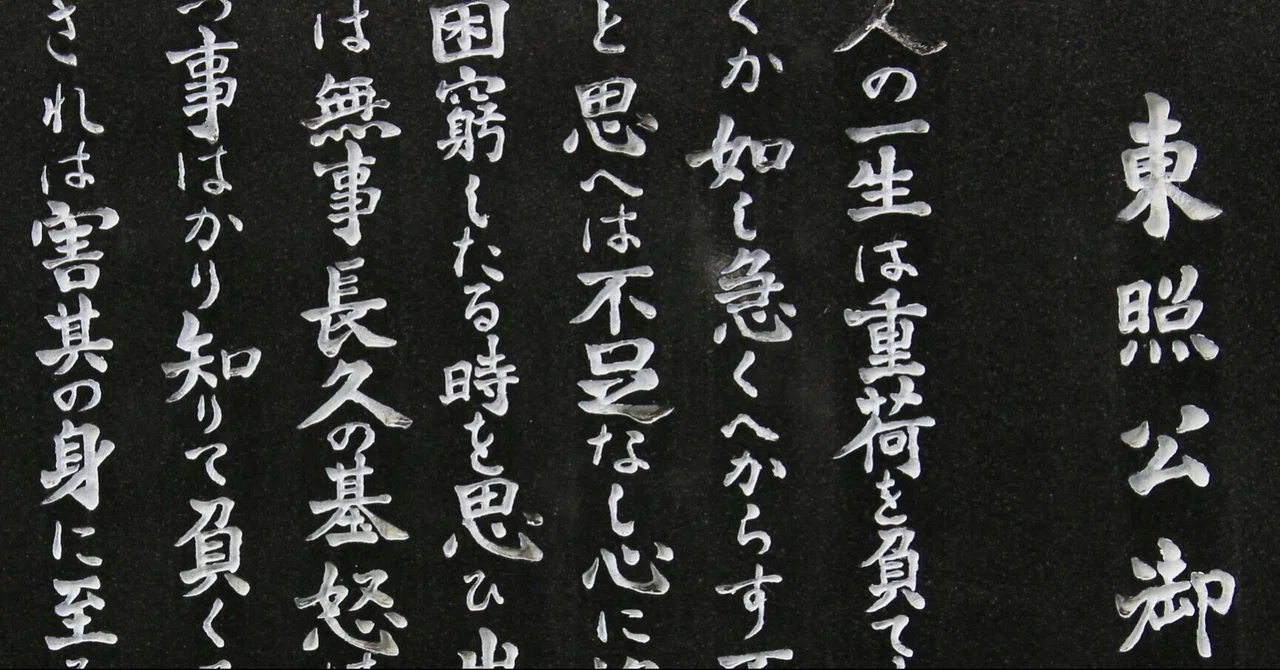 東照公御
人の一生は重荷を負て
くか如し急くへからす
と思へは不足なし心に
困窮したる時を思ひ出
は無事長久の基怒
事はかり知りて負く
されは害其の身に至